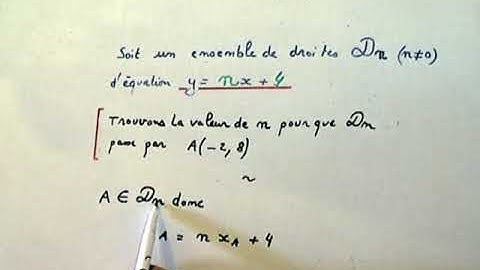 Soit un ensemble de droites Dn (n≠0)
d'équation y = nx + 4
Trouvons la valeur de n pour que Dn
passe par A(-2, 8)
~
A ∈ Dn donc
A = n xA + 4